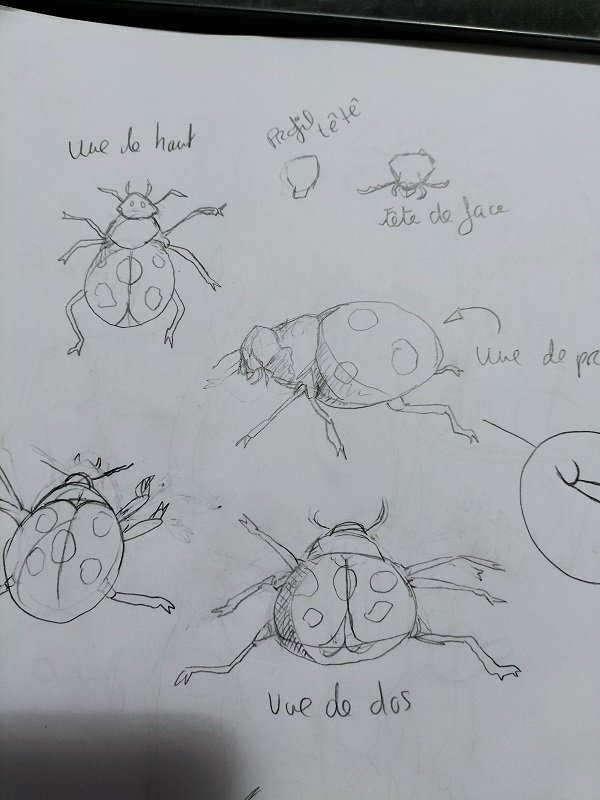 Vue de haut
Profil tête
tête de face
Vue de
Vue de dos